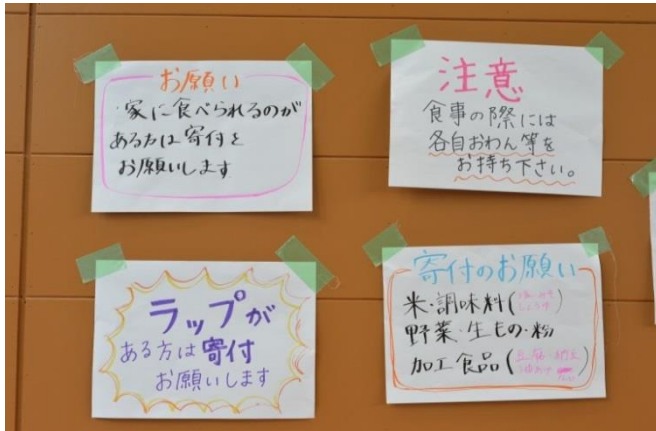 お願い
・家に食べられるのが
ある方は寄付を
お願いします
注意
食事の際には
各自おわん等を
お持ち下さい。
ラップが
ある方は寄付
お願いします
寄付のお願い
米・調味料(
しょうゆ)
野菜・生もの・粉
加工食品(豆腐・納豆